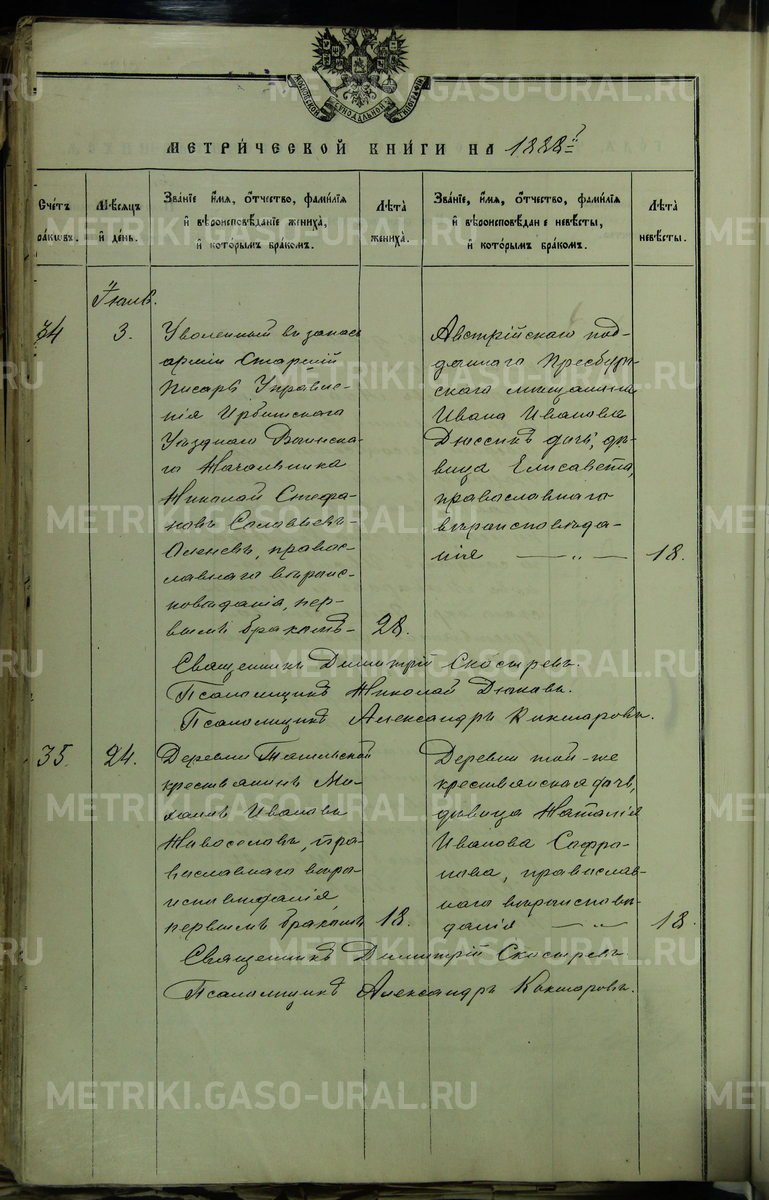 МОСКОВСКОЙ СѴНОДАЛЬНОЙ ТИПОГРАФІИ
МЕТРИ́ЧЕСКОЙ КНИ́ГИ НА 1888 г
Сче́тъ бра́ковъ.
Мѣ́сяцъ и҆ де́нь.
Зва́нїе и҆́мѧ, ѻ҆́тчество, фамі́лїѧ
и҆ вѣроисповѣ́данїе жениха̀,
и҆ кото́рымъ бра́комъ.
Лѣта̀ жениха̀.
Зва́нїе, и҆́мѧ, ѻ҆́тчество, фамі́лїѧ
и҆ вѣроисповѣ́дан е невѣ́сты,
и҆ кото́рымъ бра́комъ.
Лѣта̀ невѣ́сты.
Іюль.
34
3.
Уволенный въ запасъ
арміи Старшій
Писарь Управле-
нія Ирбитскаго
Уѣзднаго Воинска-
го Начальника
Николай Стефа-
новъ Соловьев-
православ-
лавнаго вѣроис-
повѣданія, пер-
вымъ бракомъ-
28.
Австрійскаго под-
даннаго Пресбург-
скаго мѣщанина
Ивана Иванова
дочь, дѣ-
вица Елисавета,
православнаго
вѣроисповѣда-
нія — „ —
18.
Священникъ Димитрій Скосыревъ.
Псаломщикъ Николай
Псаломщикъ Александръ Кокшаровъ.
35.
24.
Деревни
крестьянинъ Ми-
хаилъ Ивановъ
Новоселовъ, пра-
вославнаго вѣро-
исповѣданія,
первымъ бракомъ
18.
Деревни той-же
крестьянская дочь,
дѣвица Наталія
Иванова Сафро-
нова, православ-
наго вѣроисповѣ-
данія — „ —
18.
Священникъ Димитрій Скосыревъ.
Псаломщикъ Александръ Кокшаровъ.
METRIKI.GASO-URAL.RU